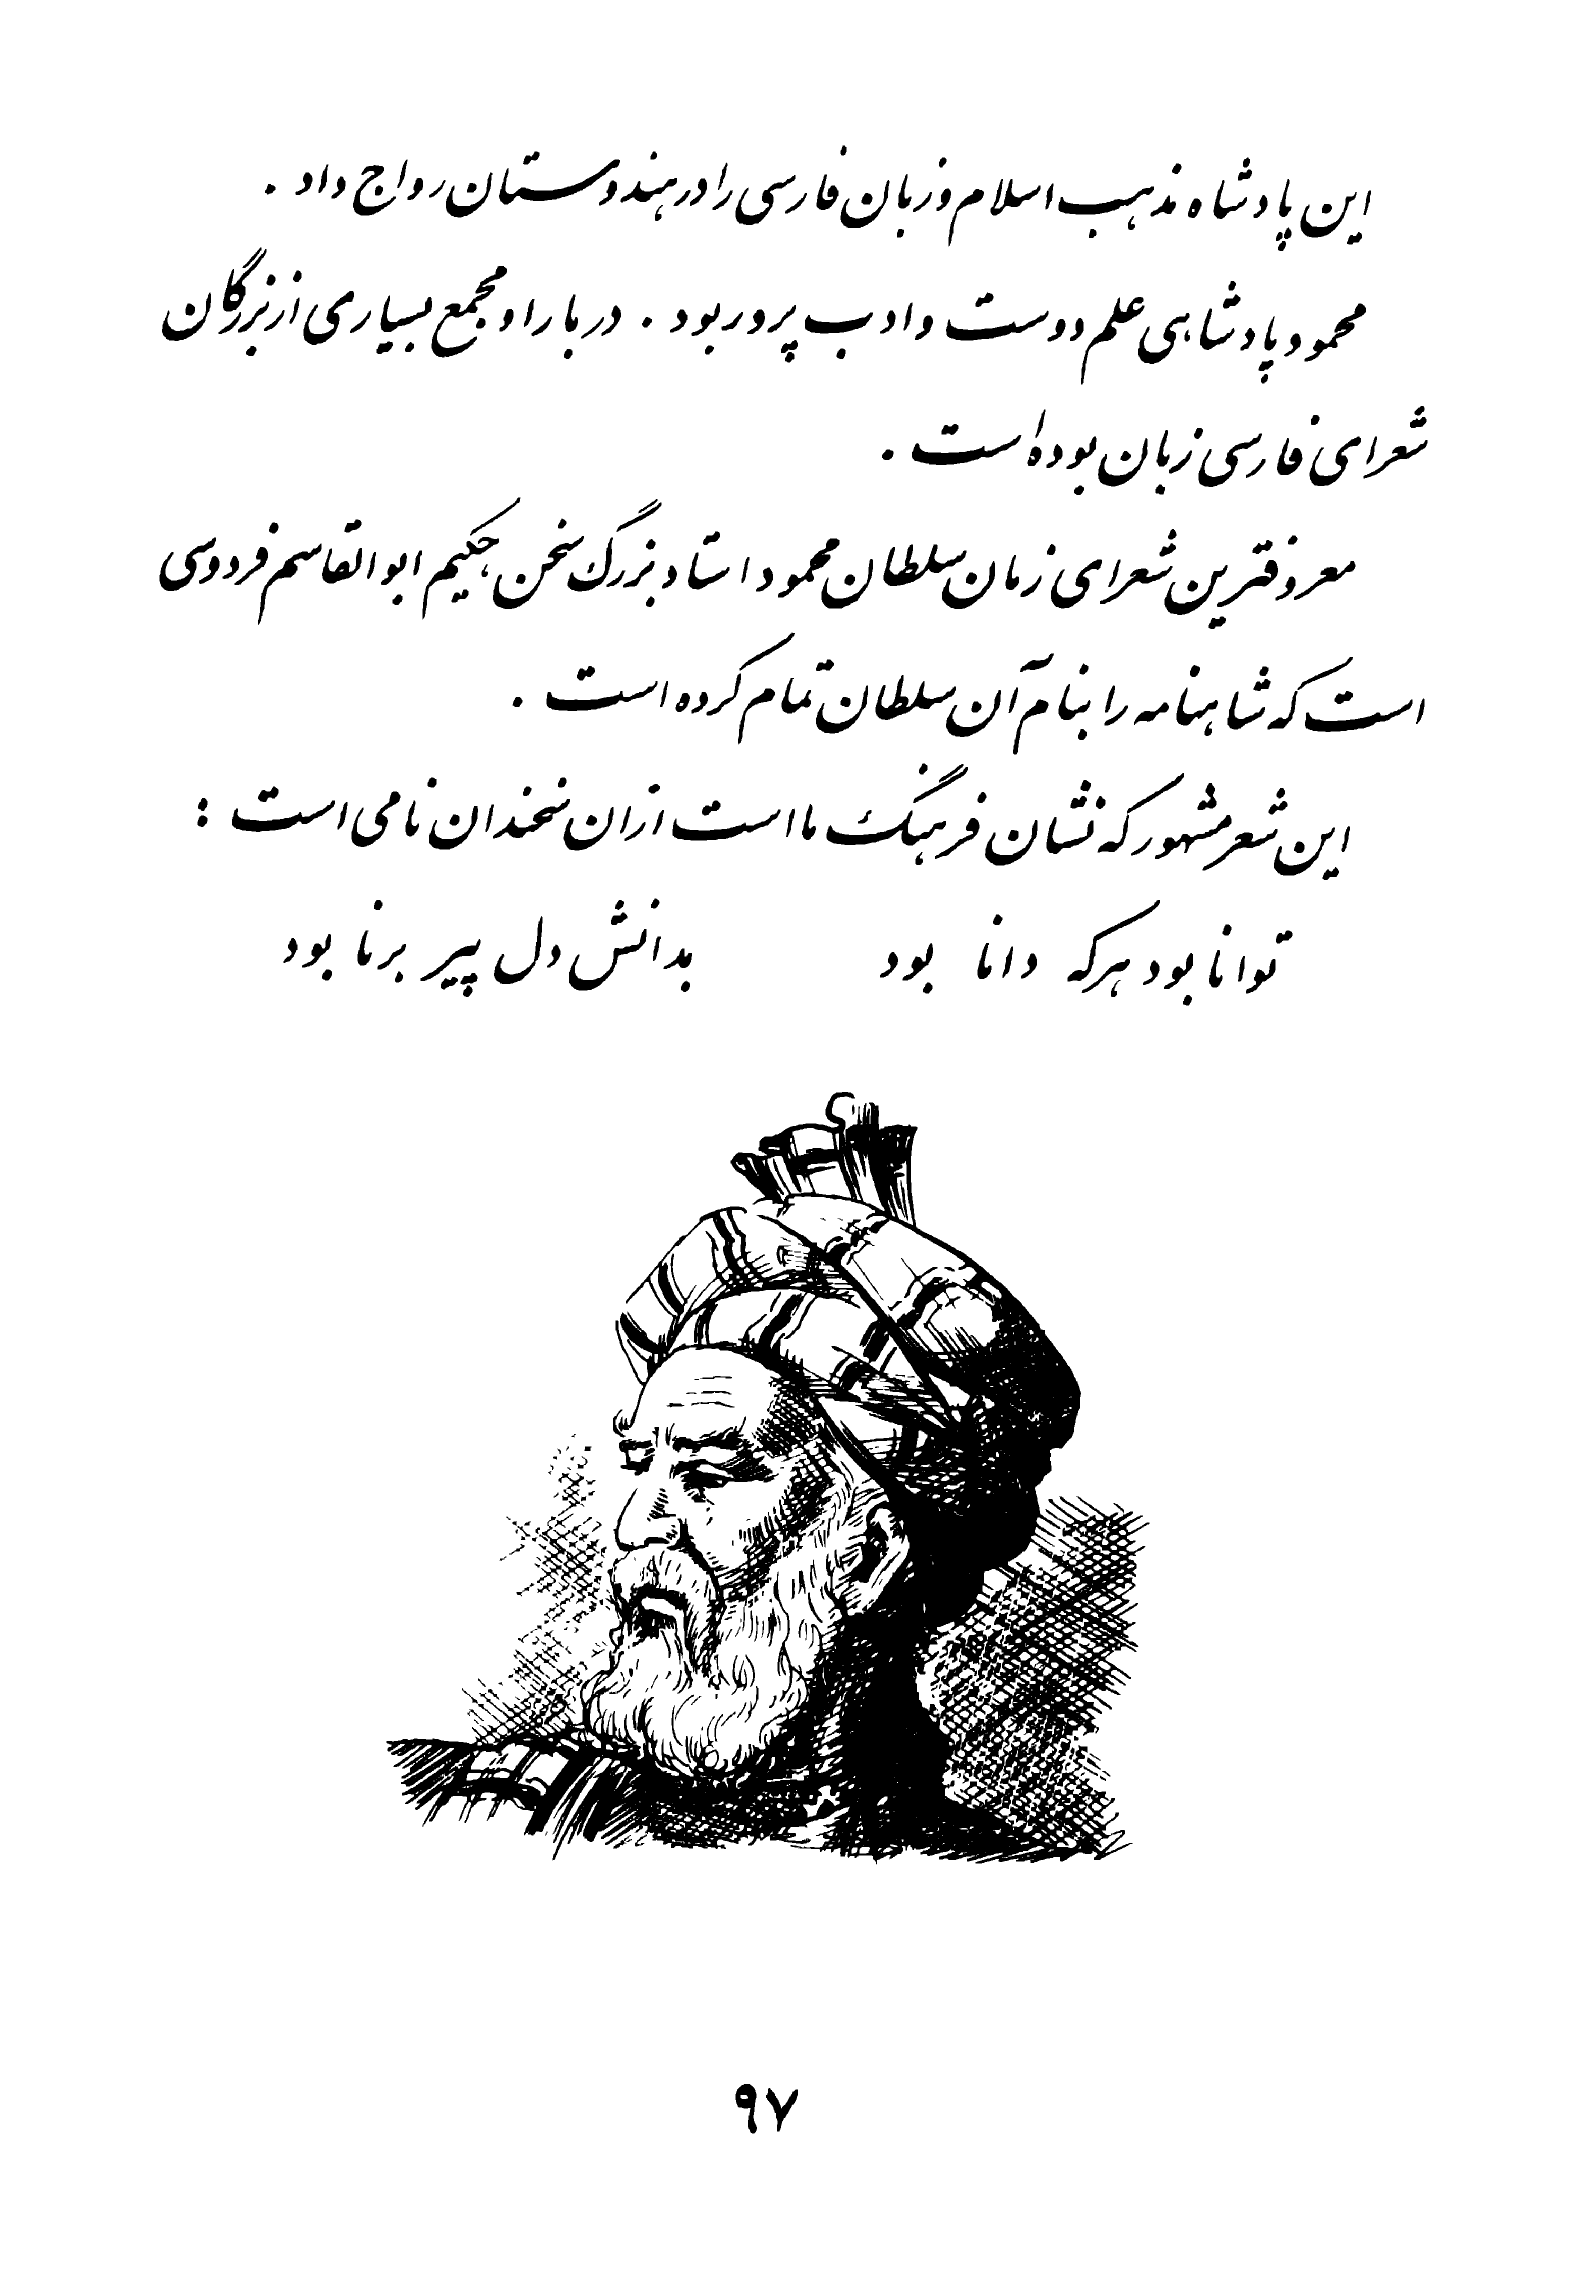 این پادشاه مذهب اسلام و زبان فارسی را در هندوستان رواج داد .
محمود پادشاهی علم دوست و ادب پرور بود . دربار او مجمع بسیاری از بزرگان
شعرای فارسی زبان بوده است .
معروفترین شعرای زمان سلطان محمود استاد بزرگ سخن حکیم ابوالقاسم فردوسی
است که شاهنامه را بنام آن سلطان تمام کرده است .
این شعر مشهور که نشان فرهنگ ما است از آن سخندان نامی است :
توانا بود هرکه دانا بود بدانش دل پیر برنا بود
۹۷